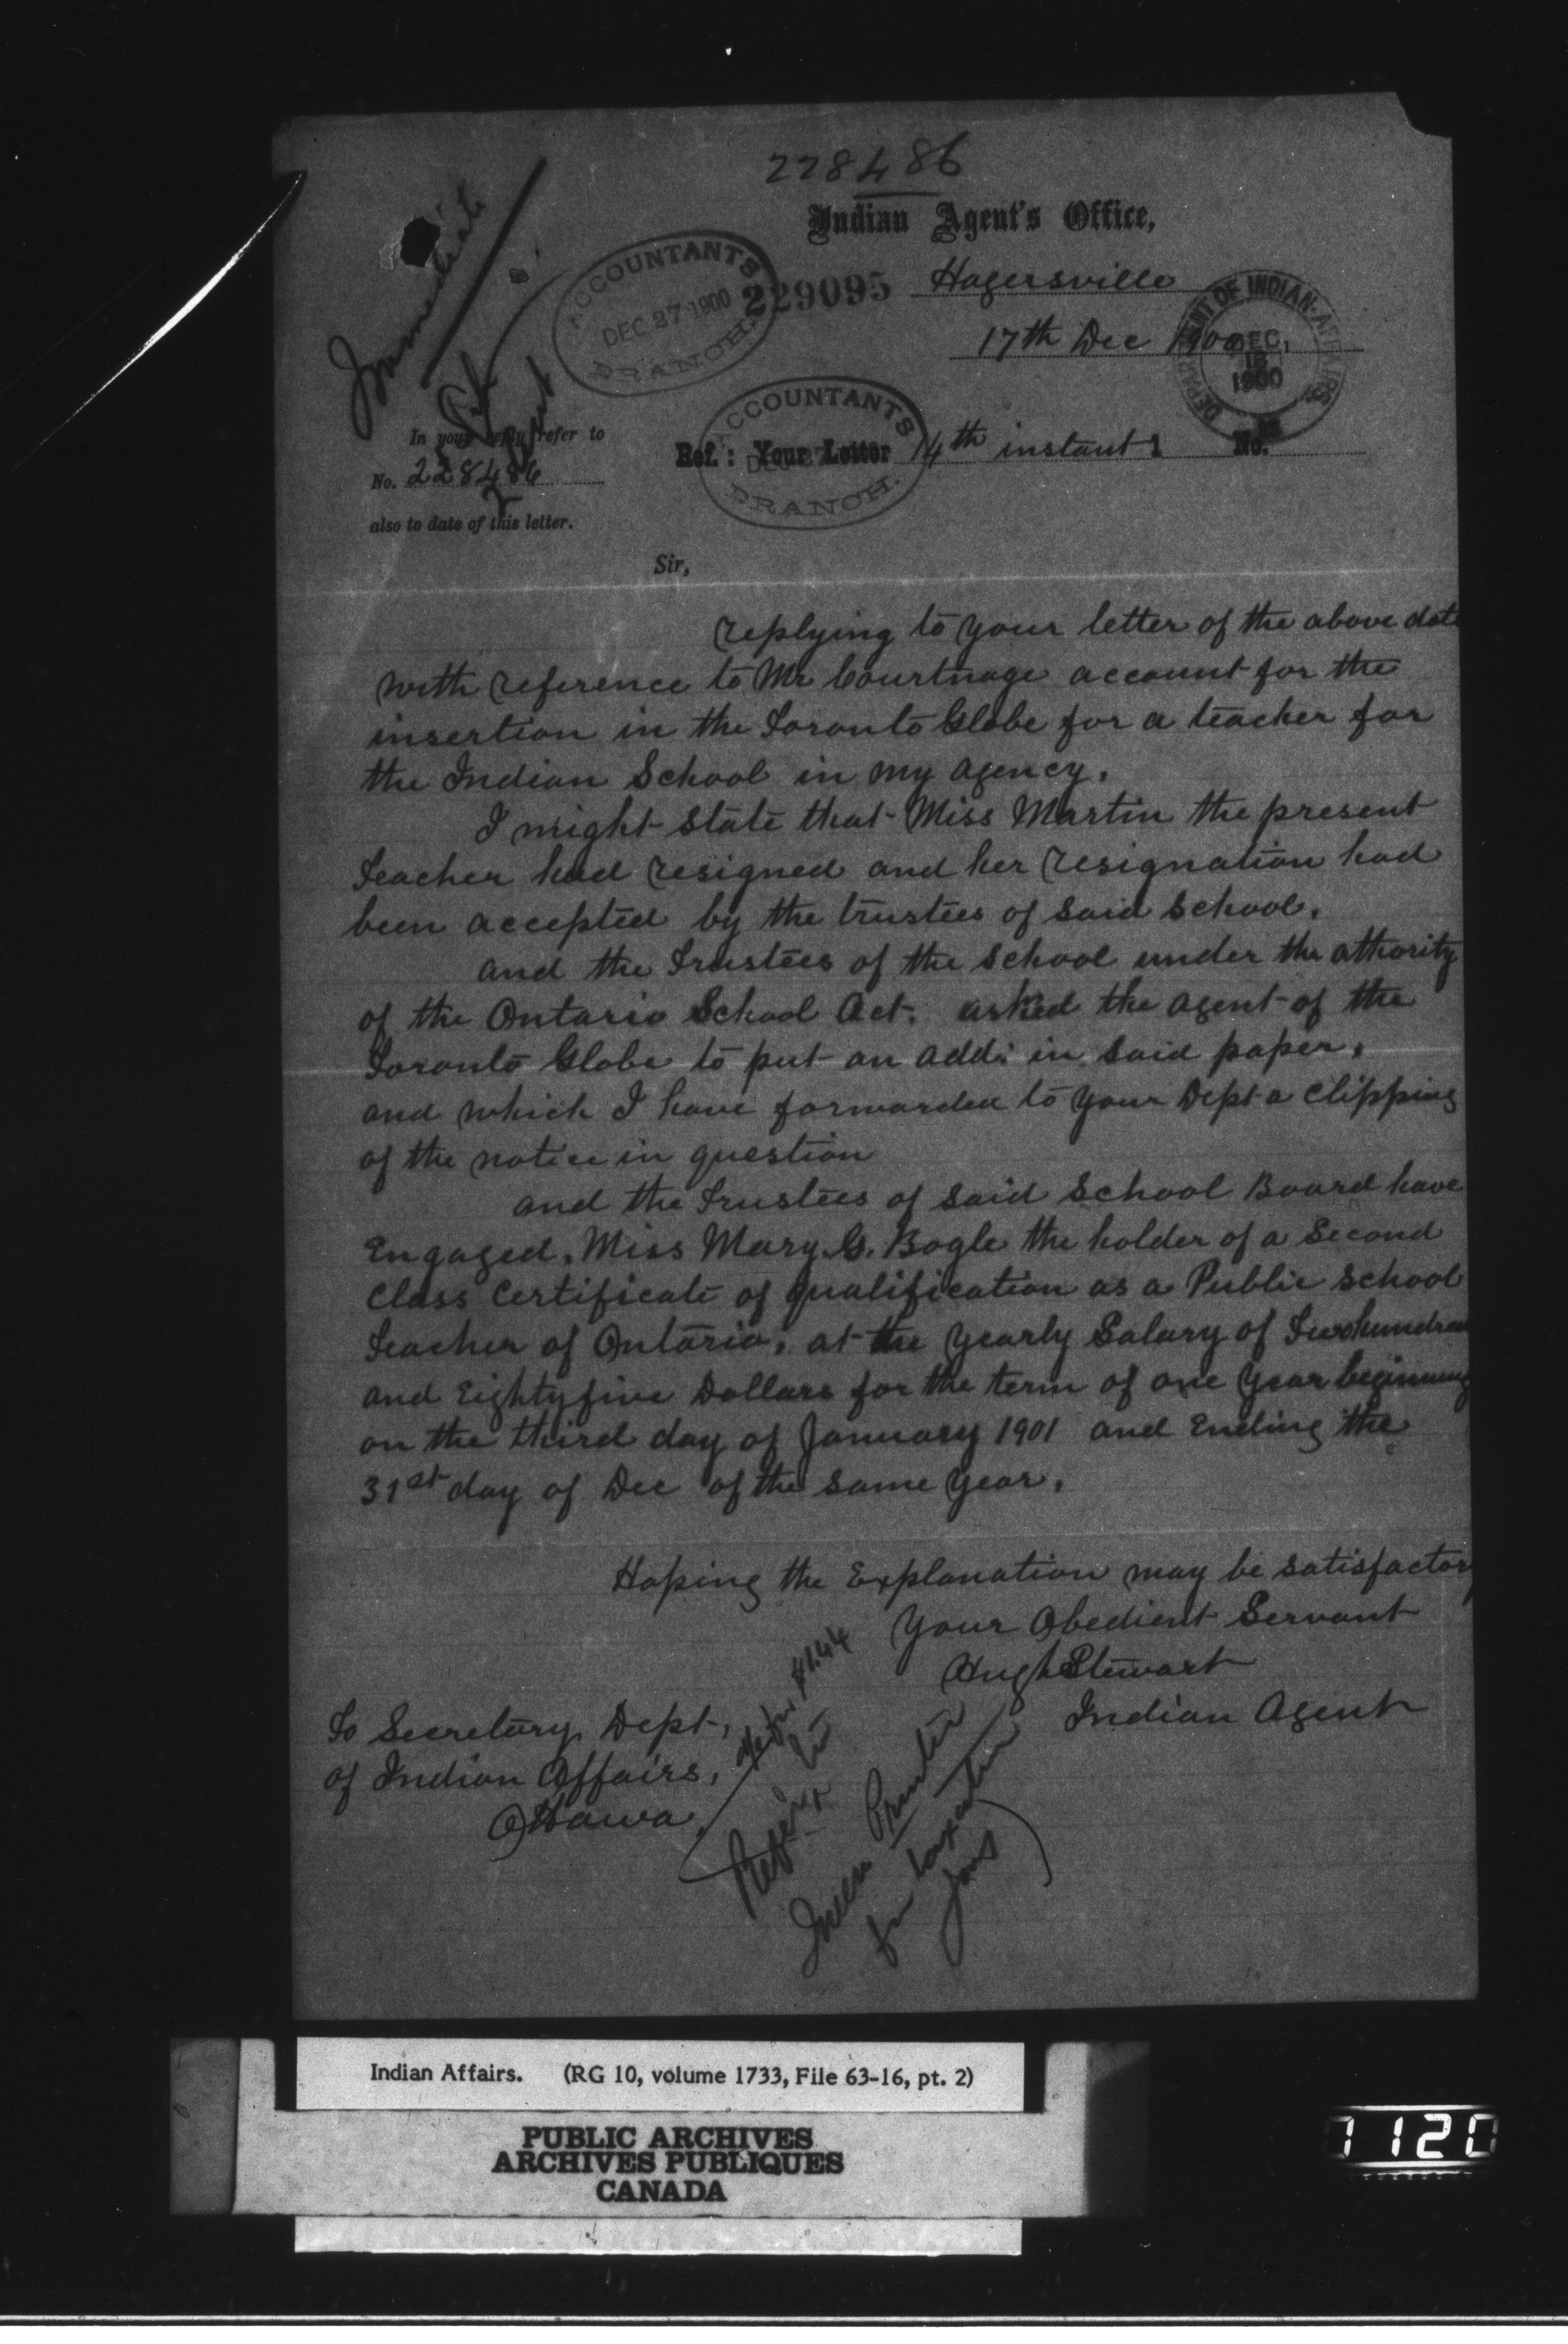 228486
Indian Agent's Office,
Immediate
ACCOUNTANTS
DEC 27 1900
BRANCH.
229095
Hagersville
17th Dec 1900
DEPARTMENT OF INDIAN AFFAIRS
DEC.
18
1900
In your reply refer to
No. 228486
also to date of this letter.
ACCOUNTANTS
BRANCH.
Ref.: Your Letter 14th instant : No.
Sir,
replying to your letter of the above date
with reference to Mr Courtnage account for the
insertion in the Toronto Globe for a teacher for
the Indian School in my agency.
I might state that Miss Martin the present
teacher had resigned and her resignation had
been accepted by the trustees of said school.
and the Trustees of the school under the athority
of the Ontario School Act. asked the agent of the
Toronto Globe to put an add: in said paper,
and which I have forwarded to your Dept a clipping
of the notice in question
and the Trustees of said School Board have
Engaged, Miss Mary G. Bogle the holder of a Second
Class Certificate of qualification as a Public School
Teacher of Ontario, at the yearly Salary of Two hundred
and Eighty five Dollars for the term of one year beginning
on the third day of January 1901 and Ending the
31st day of Dec of the same year.
Hoping the Explanation may be satisfactory
Your Obedient Servant
Hugh Stewart
Indian Agent
To Secretary Dept,
of Indian Affairs,
Ottawa.
a/c for $1.44
Refer
Queen Printer
for taxation
Indian Affairs. (RG 10, volume 1733, File 63-16, pt. 2)
PUBLIC ARCHIVES
ARCHIVES PUBLIQUES
CANADA
1120